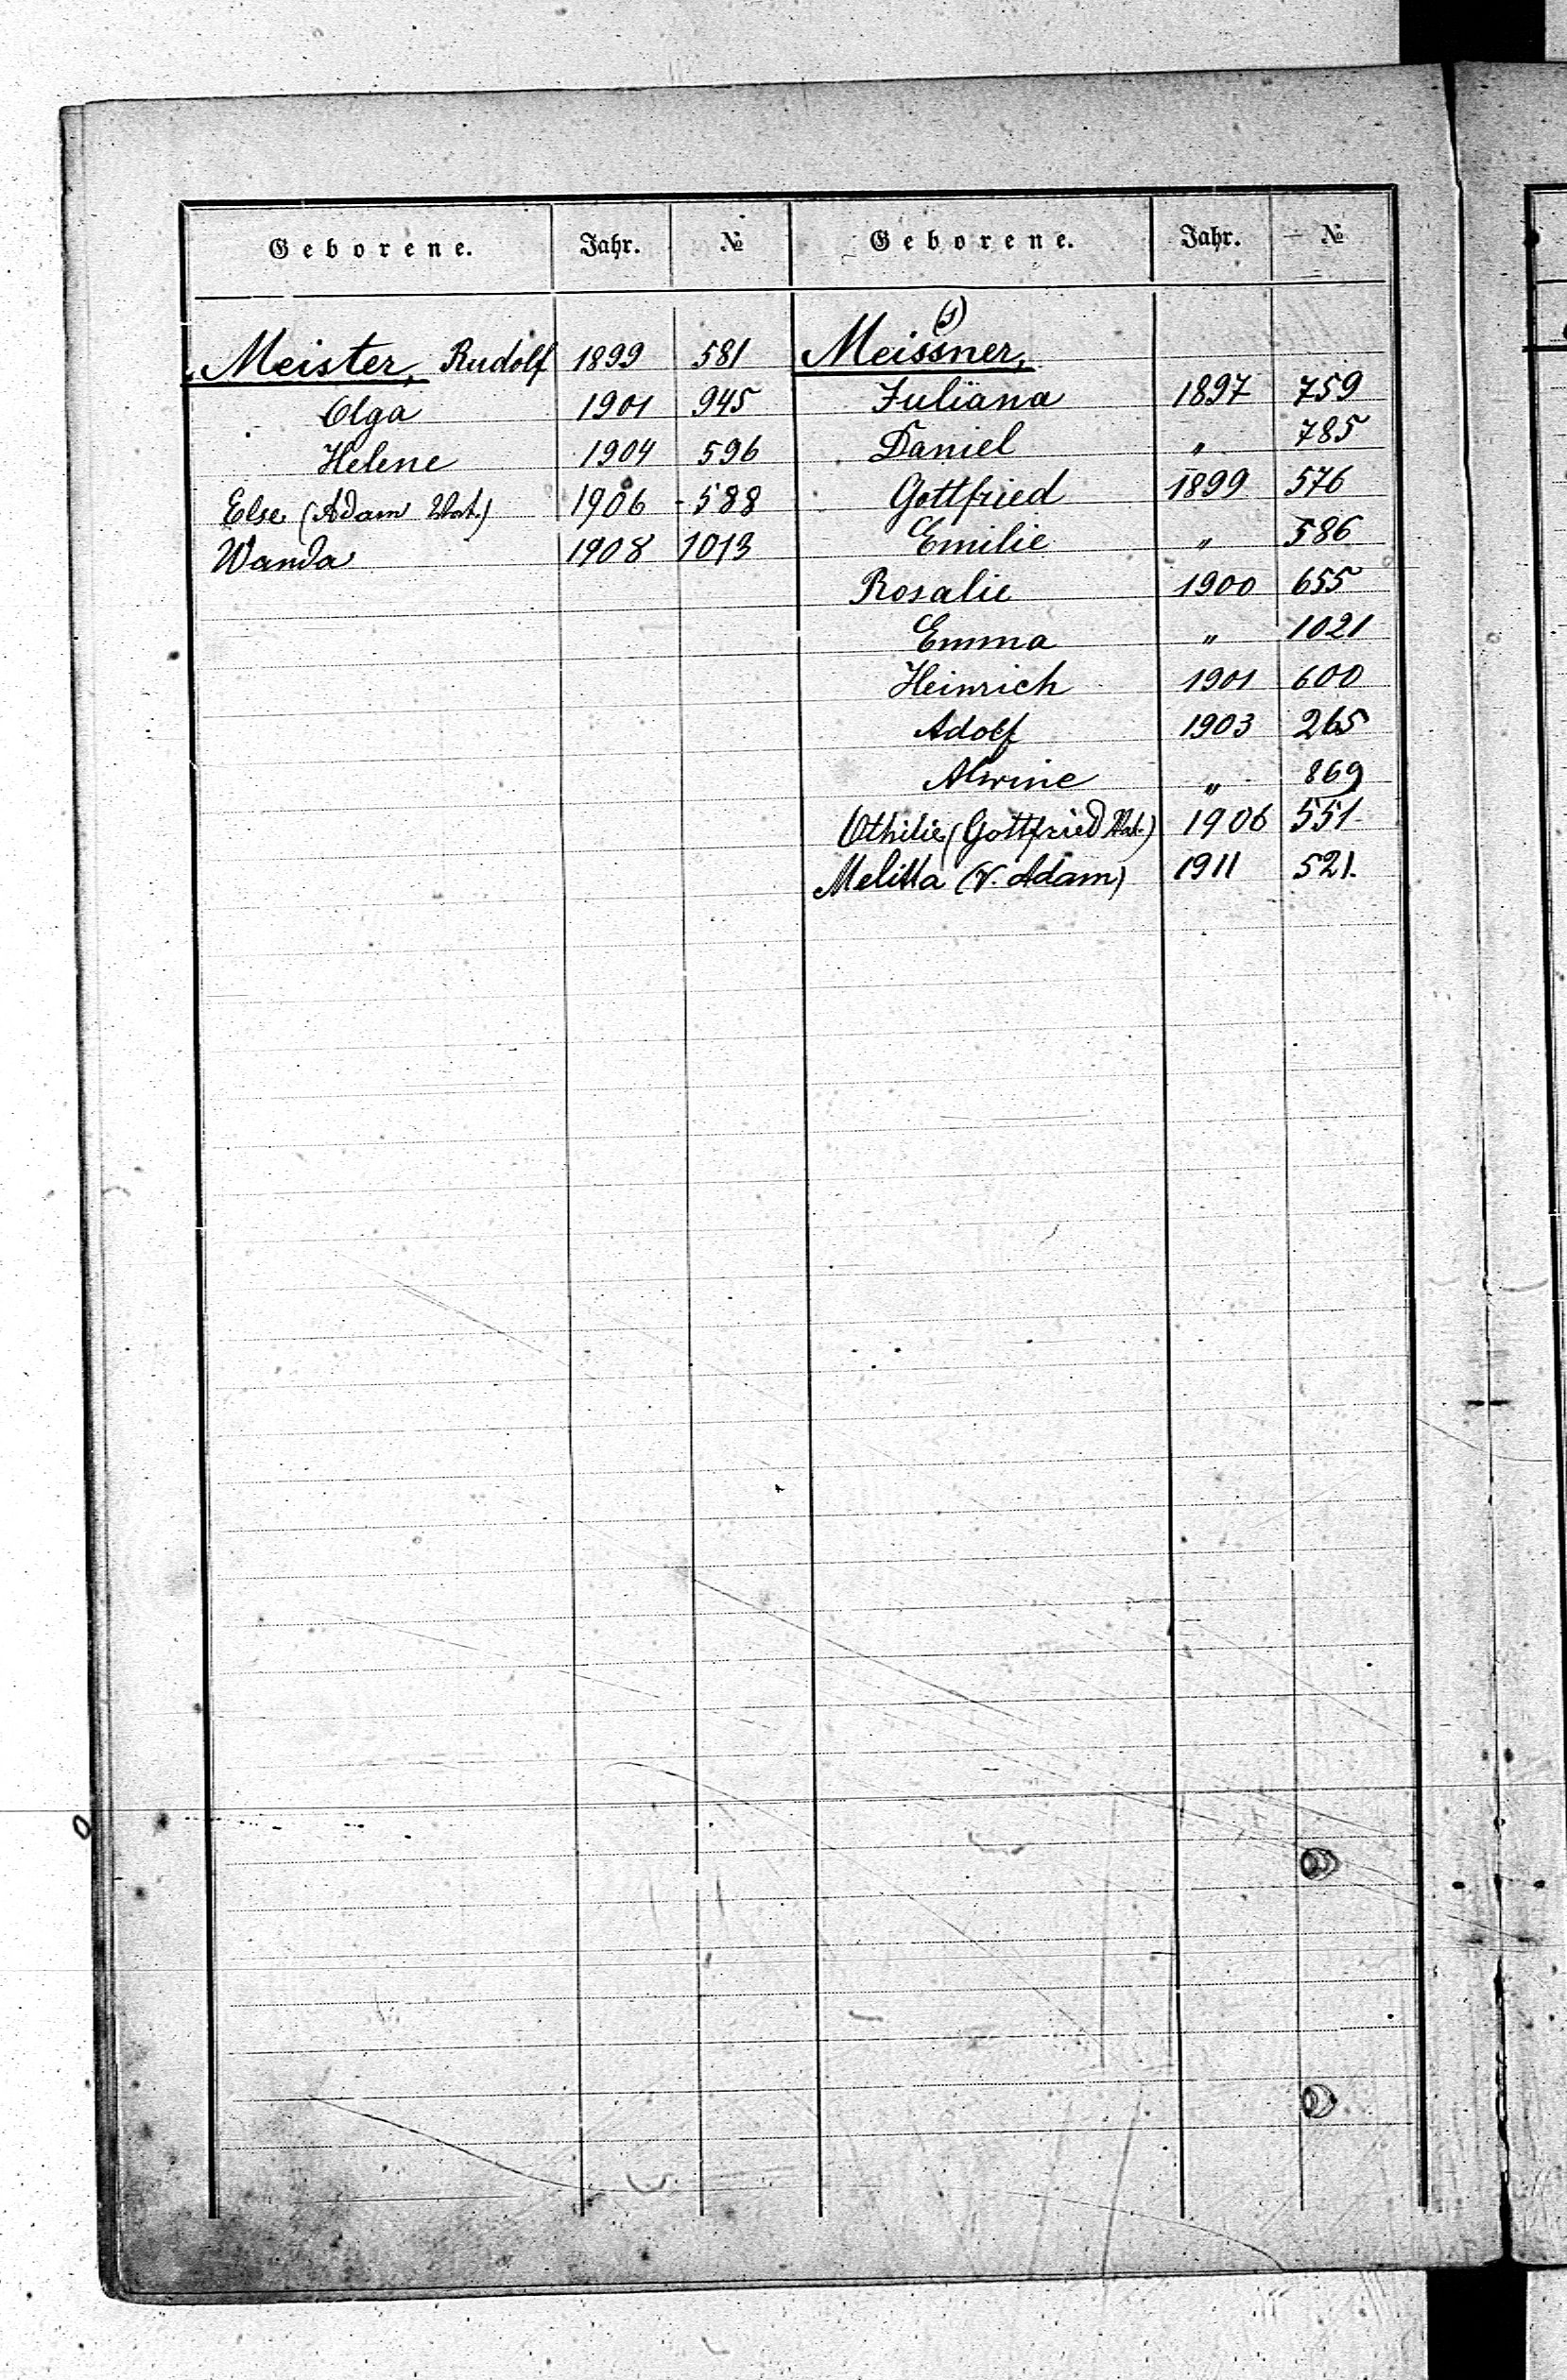 Geborene. Jahr. №
Meister, Rudolf 1899 581
Olga 1901 945
Helene 1904 596
Else (Adam Vat.) 1906 - 588
Wanda 1908 1013
Geborene. Jahr. №
(s)
Meissner,
Juliana 1897 759
Daniel " 785
Gottfried 1899 576
Emilie " 586
Rosalie 1900 655
Emma " 1021
Heinrich 1901 600
Adolf 1903 265
Alwine " 869
Othilie (Gottfried Vat.) 1906 551
Melitta (V. Adam) 1911 521.